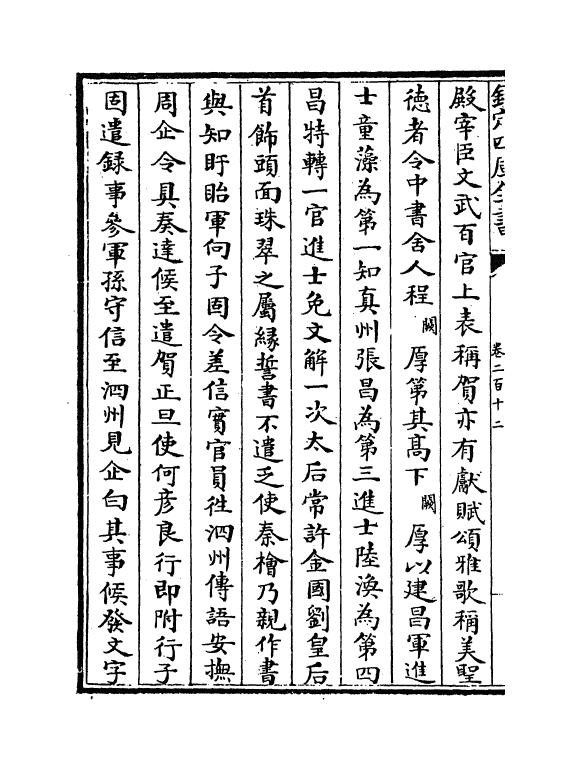 欽定四庫全書
卷二百十二
殿宰臣文武百官上表稱賀亦有獻賦頌雅歌稱美聖
徳者令中書舍人程闕厚第其髙下闕厚以建昌軍進
士童藻為第一知真州張昌為第三進士陸渙為第四
昌特轉一官進士免文解一次太后常許金國劉皇后
首飾頭面珠翠之屬縁誓書不遣乏使秦檜乃親作書
與知盱眙軍向子固令差信實官員徃泗州傳語安撫
周企令具奏達候至遣賀正旦使何彦良行即附行子
固遣録事參軍孫守信至泗州見企白其事候發文字